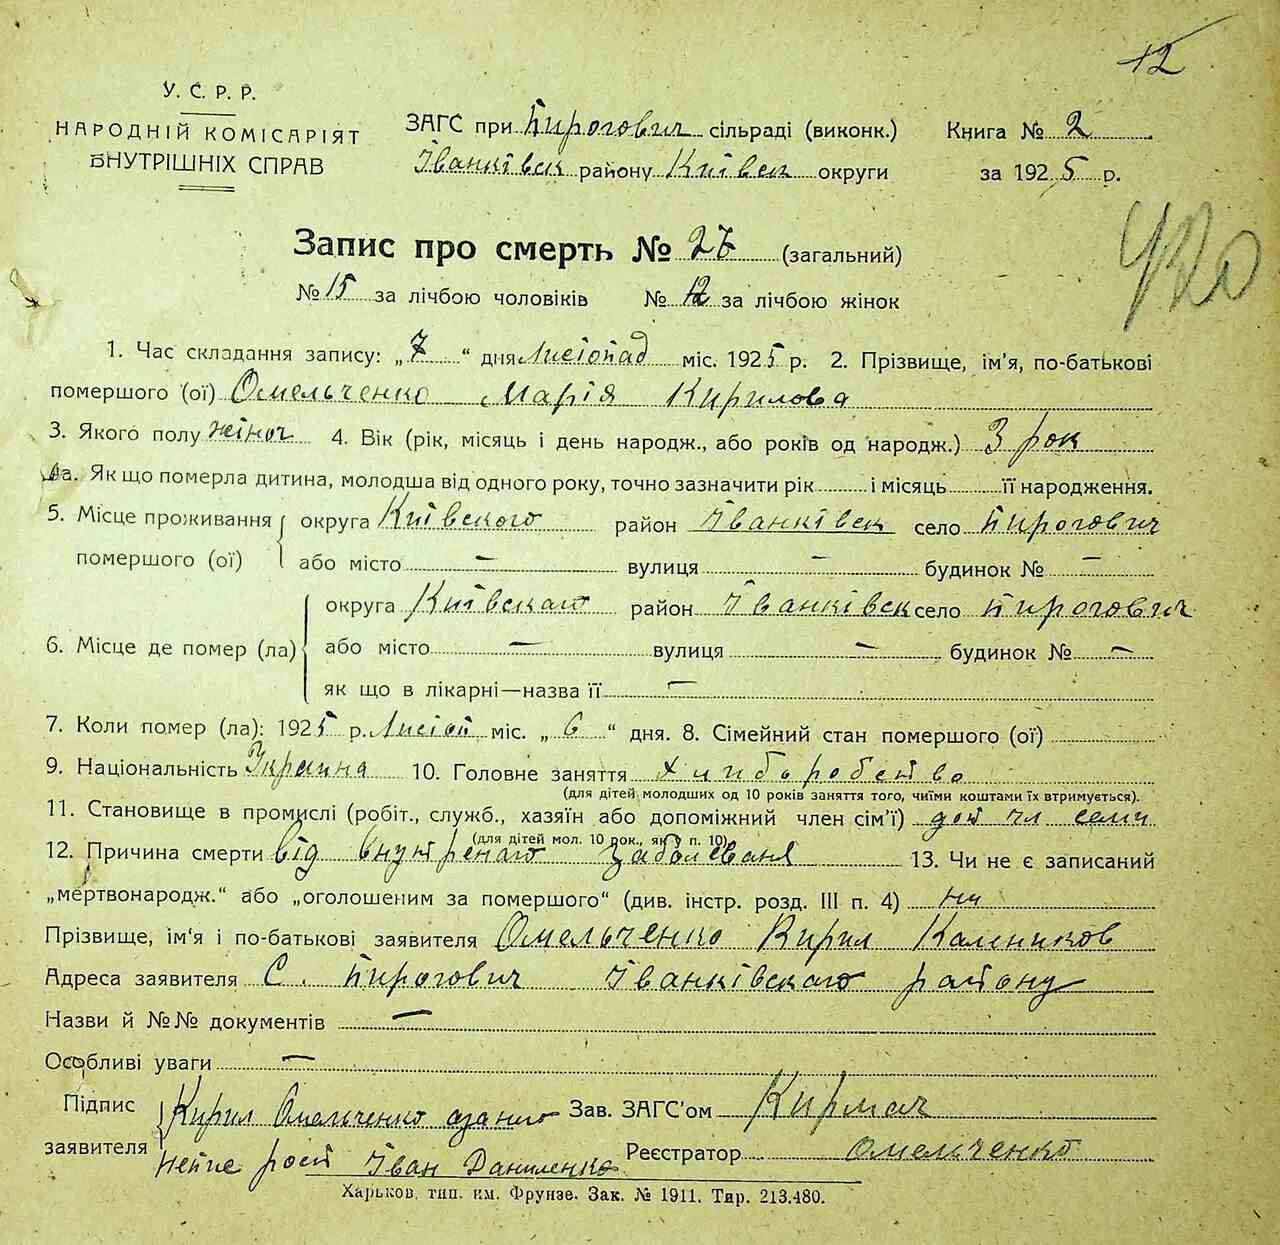 12
У. С. Р. Р.
НАРОДНІЙ КОМІСАРІЯТ
ВНУТРІШНІХ СПРАВ
ЗАГС при Пирогович сільраді (виконк.)
Іванківск району Київск округи
Книга № 2
за 1925 р.
Запис про смерть № 27 (загальний)
№ 15 за лічбою чоловіків № 12 за лічбою жінок
1. Час складання запису: „7“ дня Листопад міс. 1925 р. 2. Прізвище, ім'я, по-батькові
помершого (ої) Омельченко Марія Кирилова
3. Якого полу жіноч 4. Вік (рік, місяць і день народж., або років од народж.) 3 рок
4а. Як що померла дитина, молодша від одного року, точно зазначити рік і місяць її народження.
5. Місце проживання помершого (ої) округа Київского район Іванківск село Пирогович
або місто — вулиця — будинок № —
6. Місце де помер (ла) округа Київскаго район Іванківск село Пирогович
або місто — вулиця — будинок № —
як що в лікарні—назва її —
7. Коли помер (ла): 1925 р. Листоп міс. „6“ дня. 8. Сімейний стан помершого (ої)
9. Національність Украина 10. Головне заняття хлиборобство
(для дітей молодших од 10 років заняття того, чиїми коштами їх втримується).
11. Становище в промислі (робіт., служб., хазяїн або допоміжний член сім'ї) доп чл семи
(для дітей мол. 10 рок., як у п. 10)
12. Причина смерти від внутренаго заболеваня 13. Чи не є записаний
„мертвонародж.“ або „оголошеним за помершого“ (див. інстр. розд. III п. 4) ни
Прізвище, ім'я і по-батькові заявителя Омельченко Кирил Калеников
Адреса заявителя С. Пирогович Іванківскаго району
Назви й №№ документів —
Особливі уваги —
Підпис заявителя Кирил Омельченко Зав. ЗАГС'ом
Іван Даниленко Реєстратор Омельченко
Харьков, тип. им. Фрунзе. Зак. № 1911. Тир. 213.480.